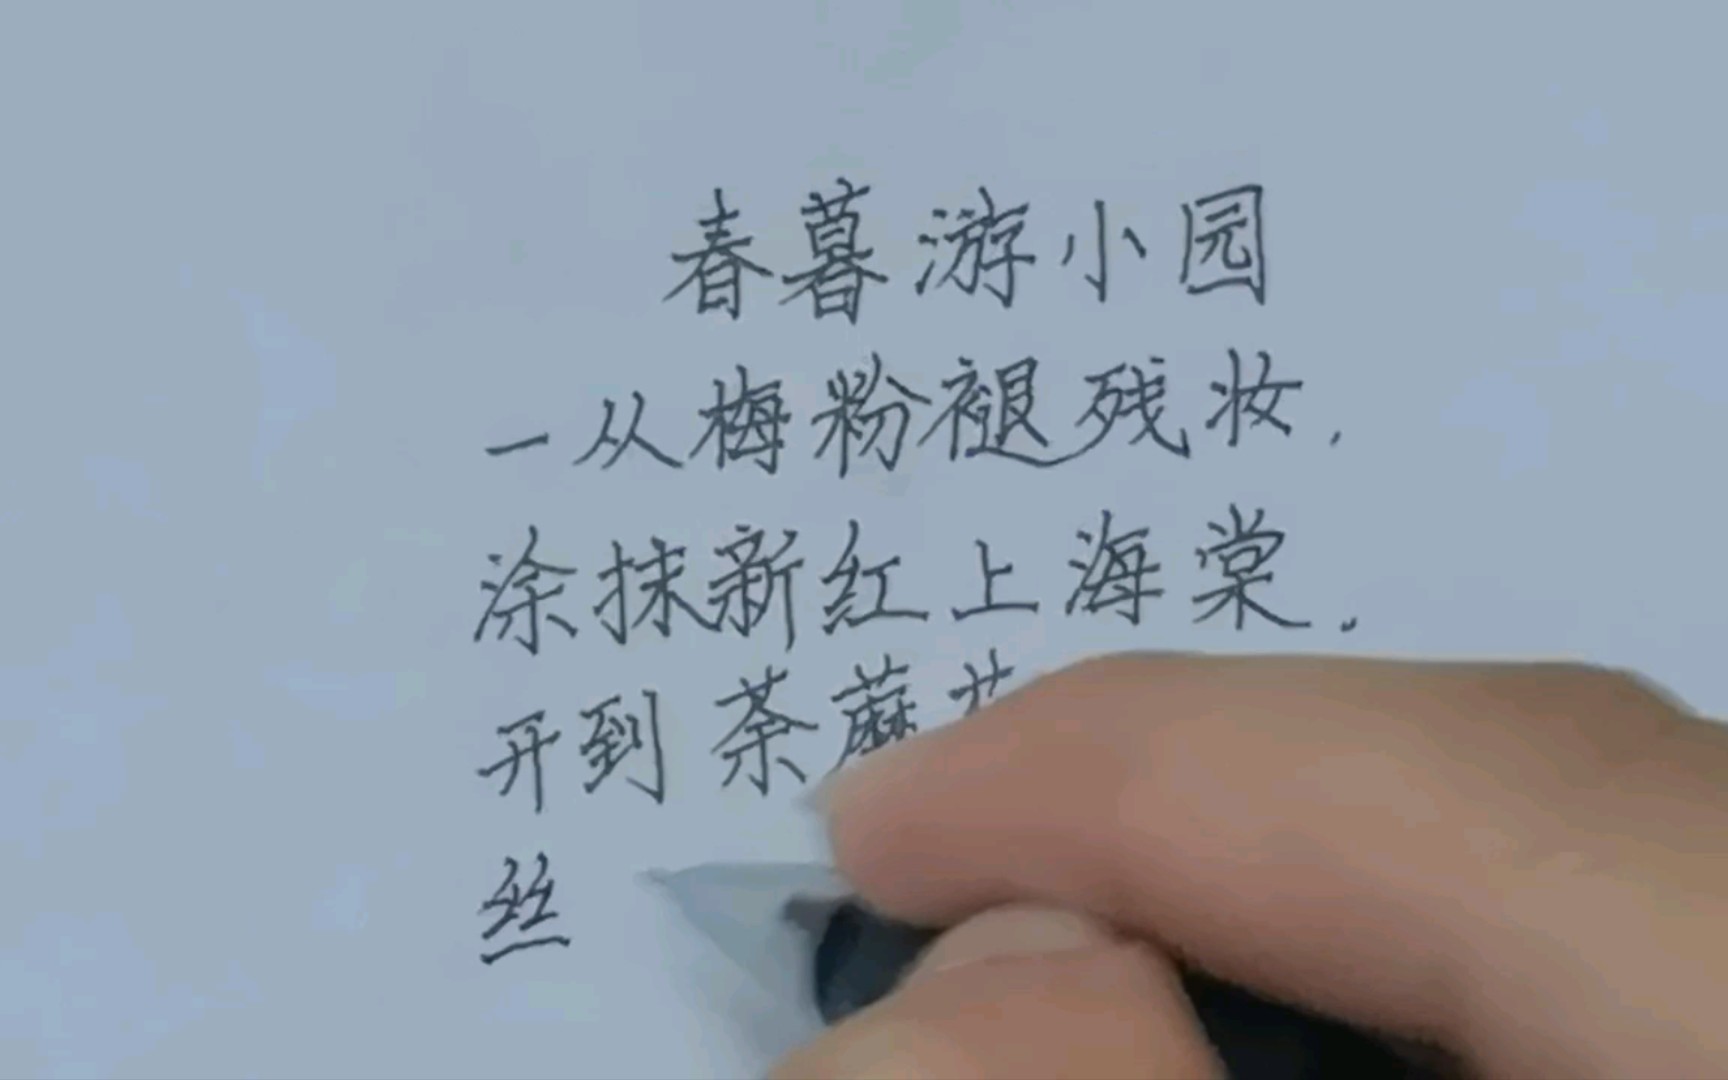 春暮游小园
一从梅粉褪残妆，
涂抹新红上海棠．
开到荼蘼
丝